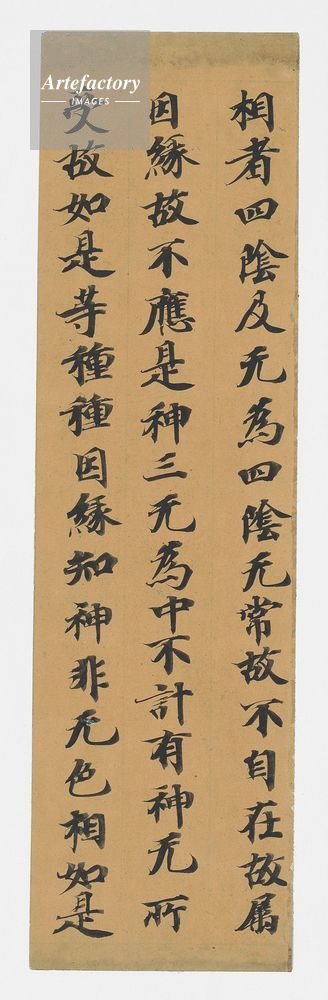 相者四陰及无為四陰无常故不自在故属
因縁故不應是神三无為中不計有神无所
受故如是等種種因縁知神非无色相如是
Artefactory
IMAGES